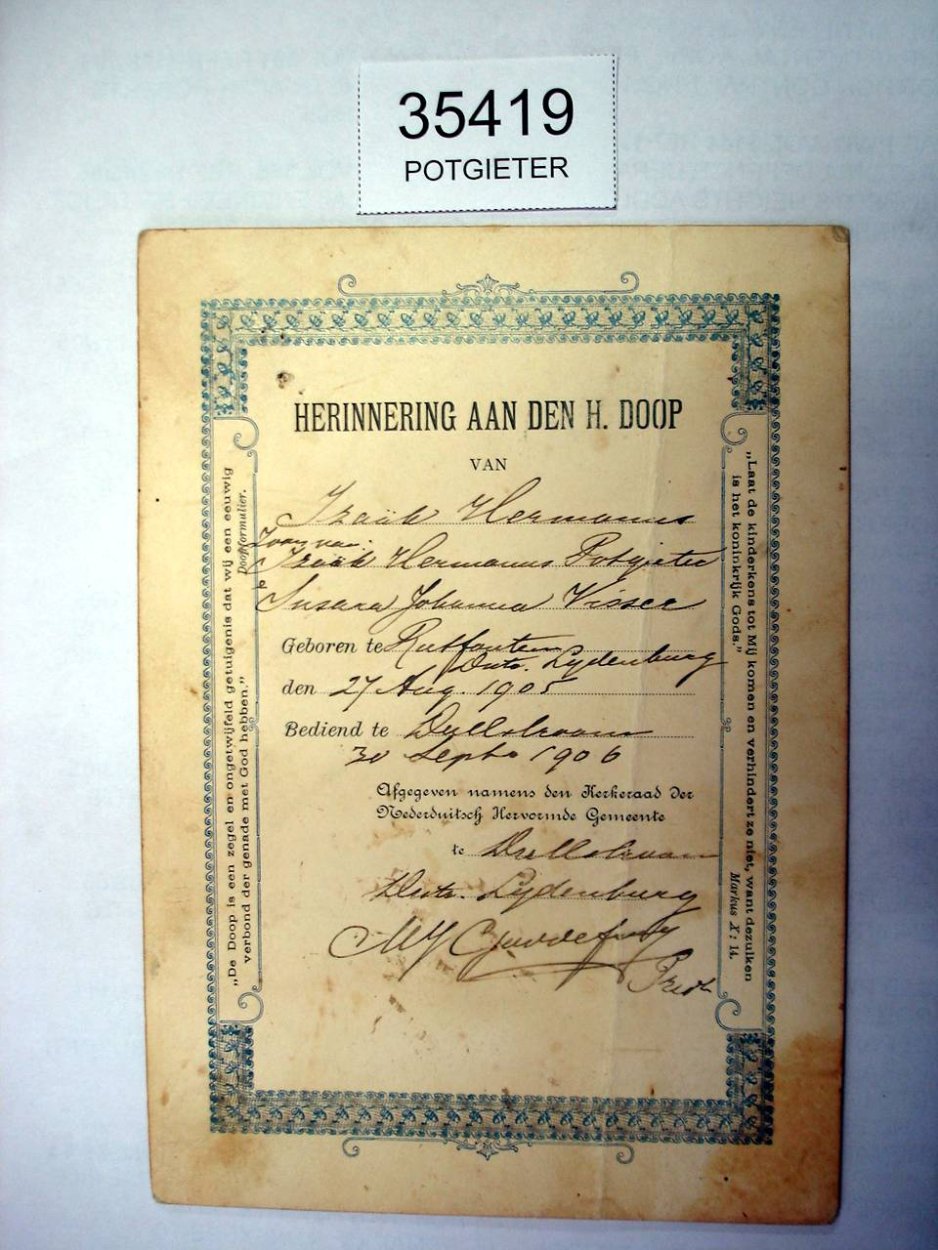 35419
POTGIETER
HERINNERING AAN DEN H. DOOP
VAN
Izaäk Hermanus
Zoon van
Izaäk Hermanus Potgieter
&
Susara Johanna Visser
Geboren te Rietfontein
Distr. Lydenburg
den 27 Aug. 1905
Bediend te Dullstroom
30 Septr 1906
Afgegeven namens den Kerkeraad der
Nederduitsch Hervormde Gemeente
te Dullstroom
Distr. Lydenburg
„De Doop is een zegel en ongetwijfeld getuigenis dat wij een eeuwig
verbond der genade met God hebben."
Doopformulier.
„Laat de kinderkens tot Mij komen en verhindert ze niet, want dezulken
is het koninkrijk Gods."
Markus X : 14.